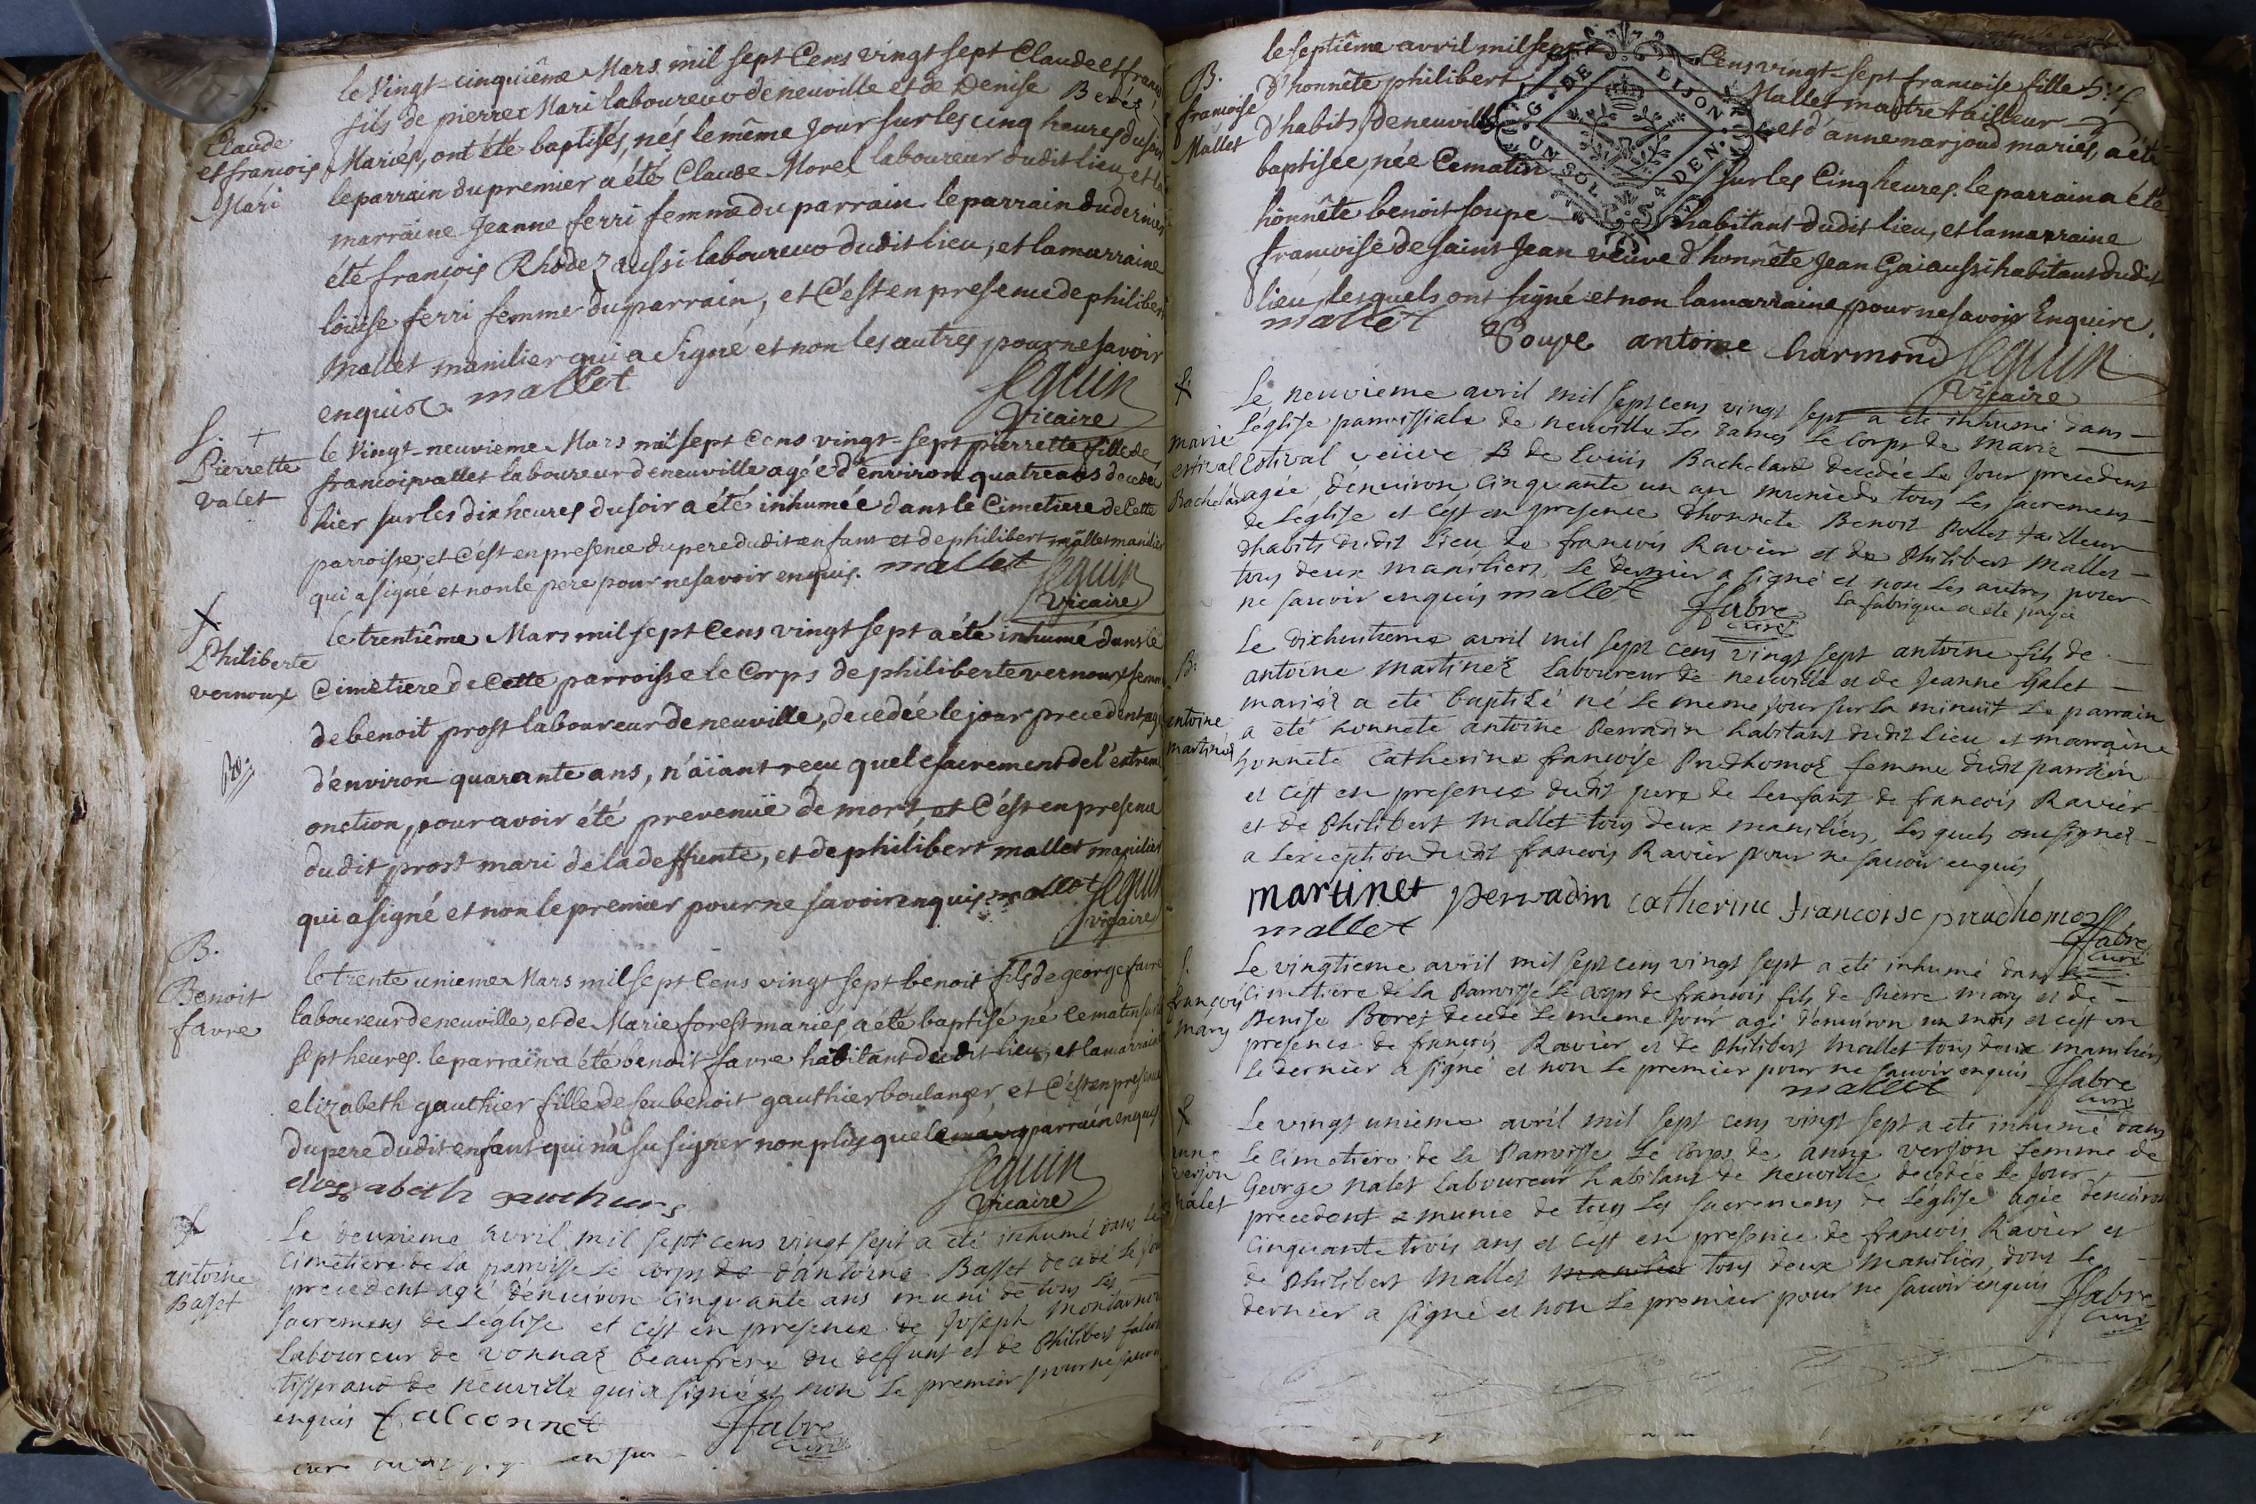 B.
Claude
et francois
Mari
le vingt-cinquiême Mars mil sept Cens vingt sept Claude et francois
fils de pierre Mari laboureur de neuville et de Denise Beres
Mariés, ont été baptisés, nés le même jour sur les cinq heures du soir
le parrain du premier a été Claude Morel laboureur dudit lieu, et la
marraine Jeanne ferri femme du parrain. le parrain du dernier
été françois Rhodez aussi laboureur dudit lieu, et la marraine
loüise ferri femme du parrain, et C'est en presence de philibert
Mallet manilier qui a signé et non les autres pour ne savoir
enquis. mallet
seguin
vicaire
S.
Pierrette
valet
le vingt-neuvieme Mars mil sept Cens vingt-sept pierrette fille de
francois vallet laboureur de neuville agée d'environ quatre ans decedée
hier sur les dix heures du soir a été inhumée dans le Cimetiere de Cette
parroisse, et C'est en presence du pere dudit enfant et de philibert mallet manilier
qui a signé et non le pere pour ne savoir enquis. mallet
seguin
vicaire
Philiberte
vernoux
le trentiême Mars mil sept Cens vingt sept a été inhumé dans le
Cimetiere de Cette parroisse le Corps de philiberte vernoux femme
de benoit prost laboureur de neuville, decedée le jour precedent agée
d'environ quarante ans, n'aïant reçu que le sacrement de l'extreme
onction, pour avoir été prevenuë de mort, et C'est en presence
dudit prost mari de la deffunte, et de philibert mallet manilier
qui a signé et non le premier pour ne savoir enquis. mallet seguin
vicaire
B.
Benoit
favre
le trente unieme Mars mil sept Cens vingt sept benoit fils de george favre
laboureur de neuville, et de Marie forest mariés a eté baptisé né le matin sur les
sept heures. le parrain a été benoit favre habitant dudit lieu, et la marraine
elizabeth gauthier fille de feu benoit gauthier boulanger, et C'est en presence
du pere dudit enfant qui n'a su signer non plus que le parrain enquis
seguin
vicaire
antoine
Basset
Le deuxieme avril mil sept cens vingt sept a été inhumé dans le
Cimetiere de la parroisse le corps d'antoine Basset decedé le jour
precedent agé d'environ cinquante ans muni de tous les
sacremens de l'église et c'est en presence de Joseph
Laboureur de vonnaz beaufrere du deffunt et de Philibert
tisserand de neuville qui a signé et non le premier pour ne savoir
enquis falconnet
ffabre
curé
B.
francoise
Mallet
le septiême avril mil sept Cens vingt-sept francoise fille
d'honnête philibert Mallet maitre tailleur
d'habits de neuville et d'anne narjoud mariés, a été
baptisée, née Cematin sur les Cinq heures. le parrain a été
honnête benoit soupe habitant dudit lieu, et la marraine
francoise de saint Jean veuve d'honnête Jean Gai aussi habitant dudit
lieu, lesquels ont signé et non la marraine pour ne savoir Enquire.
G. DE DIJON
UN SOL 4 DEN.
mallet Soupe antoine charmond seguin
vicaire
marie
estival
Bachelard
Le neuvieme avril mil sept cens vingt sept a été inhumé dans
l'église parroissiale de neuville les dames le corps de marie
Estival veuve de Louis Bachelard decedée le jour precedent
agée d'environ cinquante un an munie de tous les sacremens
de l'église et c'est en presence d'honnete Benoit Pollet tailleur
d'habits dudit lieu de francois Ravier et de Philibert Mallet
tous deux maniliers, le dernier a signé et non les autres pour
ne savoir enquis mallet ffabre la fabrique a eté payée
curé
B.
antoine
martinez
Le dixhuitieme avril mil sept cens vingt sept antoine fils de
antoine martinez Laboureur de neuville et de Jeanne
mariés a eté baptisé né le meme jour sur la minuit Le parrain
a été honnete antoine Perradin habitant dudit lieu et marraine
honnete Catherine francoise Prudhomoz femme dudit parrain
et c'est en presence dudit pere de l'enfant de francois Ravier
et de Philibert Mallet tous deux maniliers, lesquels ont signez
a l'exception dudit francois Ravier pour ne savoir enquis
martinet perradin catherine francoise prudhomoz
mallet
ffabre
curé
S.
francois
mary
Le vingtieme avril mil sept cens vingt sept a eté inhumé dans le
Cimetiere de la Parroisse le corps de francois fils de Pierre mary et de
Denise Beres decedé le meme jour agé d'environ un mois et c'est en
presence de francois Ravier et de Philibert Mallet tous deux maniliers
le dernier a signé et non le premier pour ne savoir enquis
mallet ffabre
curé
anne
verjon
Le vingt unieme avril mil sept cens vingt sept a eté inhumé dans
le cimetiere de la Parroisse le corps de anne verjon femme de
George nalet Laboureur habitant de neuville decedée le jour
precedent munie de tous les sacremens de l'église agée d'environ
cinquante trois ans et c'est en presence de francois Ravier et
de Philibert Mallet manilier tous deux maniliers, dont le
dernier a signé et non le premier pour ne savoir enquis
ffabre
curé